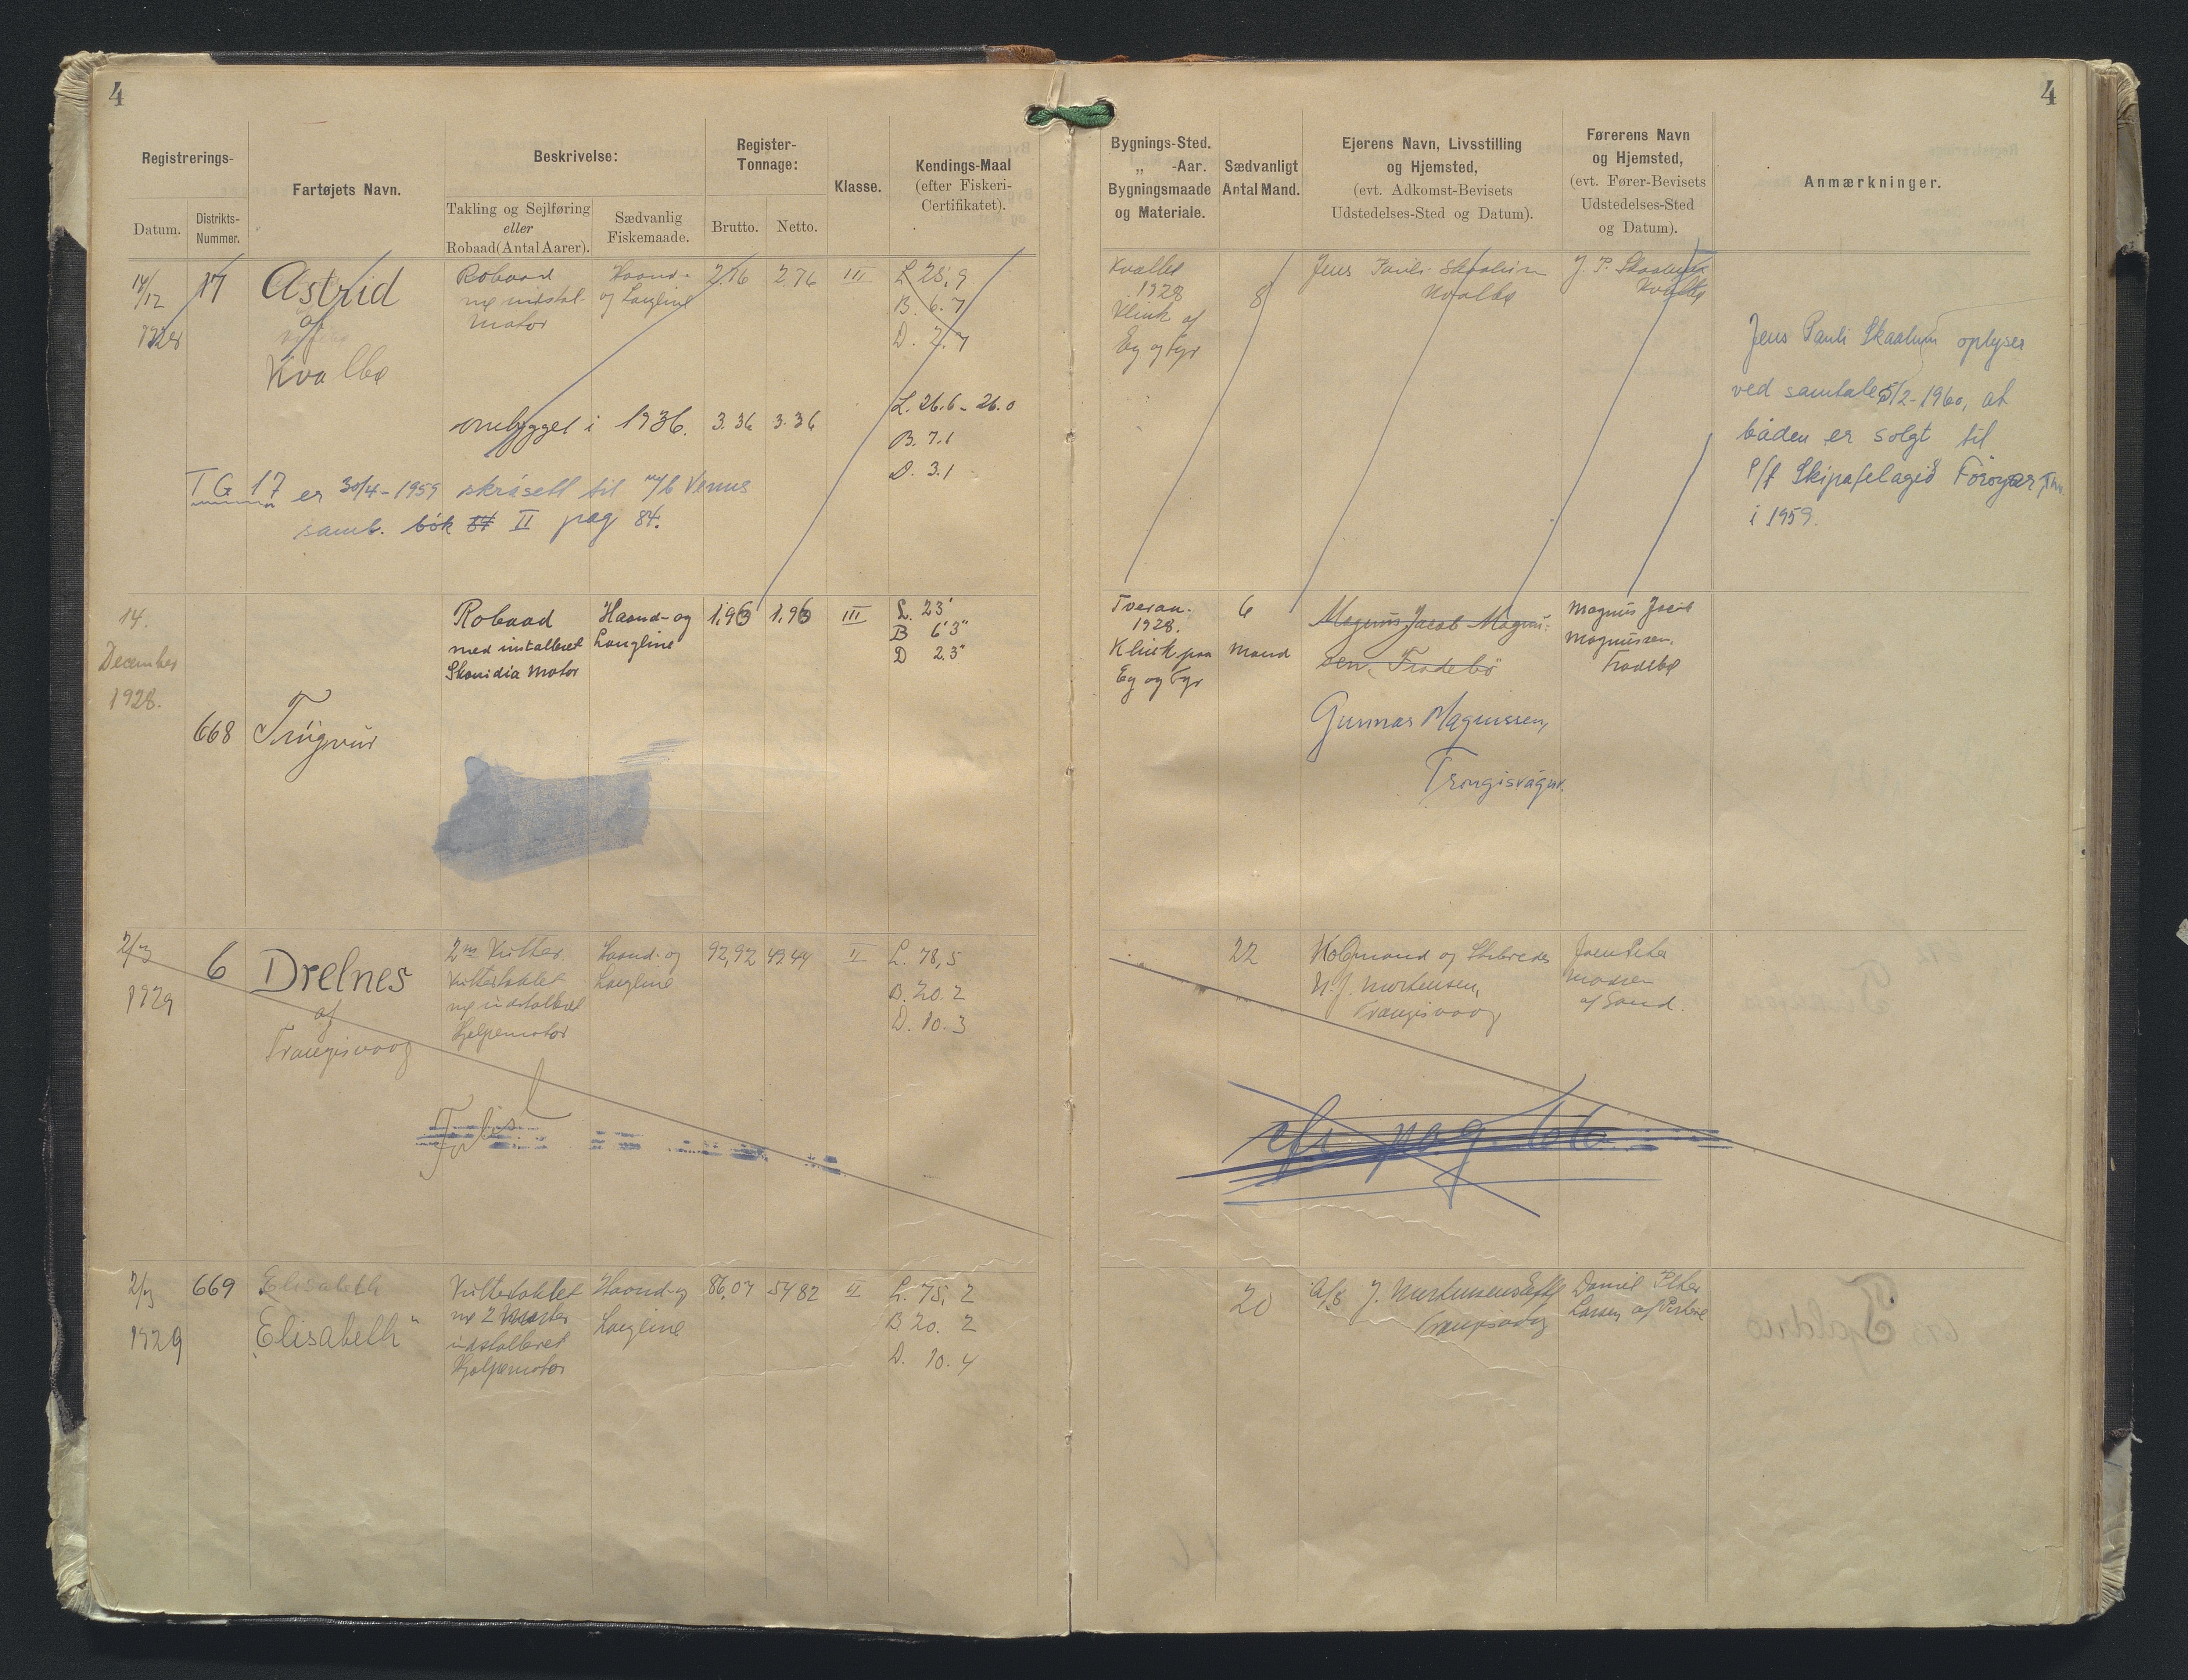 4
Registrerings-
Datum.
Distrikts-
Nummer.
Fartøjets Navn.
Beskrivelse:
Takling og Sejlføring
eller
Robaad (Antal Aarer).
Sædvanlig
Fiskemaade.
Register-
Tonnage:
Brutto.
Netto.
Klasse.
Kendings-Maal
(efter Fiskeri-
Certifikatet).
14/12
1928
17
Astrid
af
Kvalbø
Robaad
m/ instal.
Motor
Haand-
og Langline
2.76
2.76
III
L 25,9
B. 6.7
D. 2.7
ombygget i 1936.
3.36
3.36
L. 26.6 - 26.0
B. 7.1
D. 3.1
TG 17 er 30/4-1959 skrásett til m/b Venus
samb. bók 84 II pag 84.
14.
December
1928.
668
Trúgvin
Robaad
med installeret
Skandia Motor
Haand- og
Langline
1,96
1,96
III
L. 23'
B 6'3"
D 2.3"
2/3
1929
6
Drelnes
af
Trangisvaag
2m Kutter.
Kuttertaklet
m/ indstalleret
Hjelpemotor
Haand- og
Langline
92,92
49.44
II
L. 78,5
B. 20.2
D. 10.3
Forlist
2/3
1929
669
Elisabeth
„Elisabeth"
Kuttertaklet
m/ 2 Master
indstalleret
Hjælpemotor
Haand- og
Langline
86,07
54 82
II
L. 75, 2
B 20. 2
D. 10. 4
4
Bygnings-Sted.
„ -Aar.
Bygningsmaade
og Materiale.
Sædvanligt
Antal Mand.
Ejerens Navn, Livsstilling
og Hjemsted,
(evt. Adkomst-Bevisets
Udstedelses-Sted og Datum).
Førerens Navn
og Hjemsted,
(evt. Fører-Bevisets
Udstedelses-Sted
og Datum).
Anmærkninger.
Kvalbø
1928
Klink af
Eg og Fyr
8
Jens Pauli Skaalum
Kvalbø
J. P. Skaalum
Kvalbø
Jens Pauli Skaalum oplyser
ved samtale 5/2-1960, at
båden er solgt til
P/f Skipafelagið Føroyar, Thn.
i 1959.
Tveraa.
1928.
Klink paa
Eg og Fyr
6
Mand
Magnus Jacob Magnus-
sen, Frodebø
Gunnar Magnussen,
Trongisvágur.
Magnus Jacob
Magnussen.
Frodebø
22
Købmand og Skibsreder
N. J. Mortensen,
Trangisvaag
Joen Peter
Madsen
af Sand.
cfr. pag. 66
20
A/S J. Mortensens Eftf
Trangisvaag
Daniel Peter
Larsen af Porkere